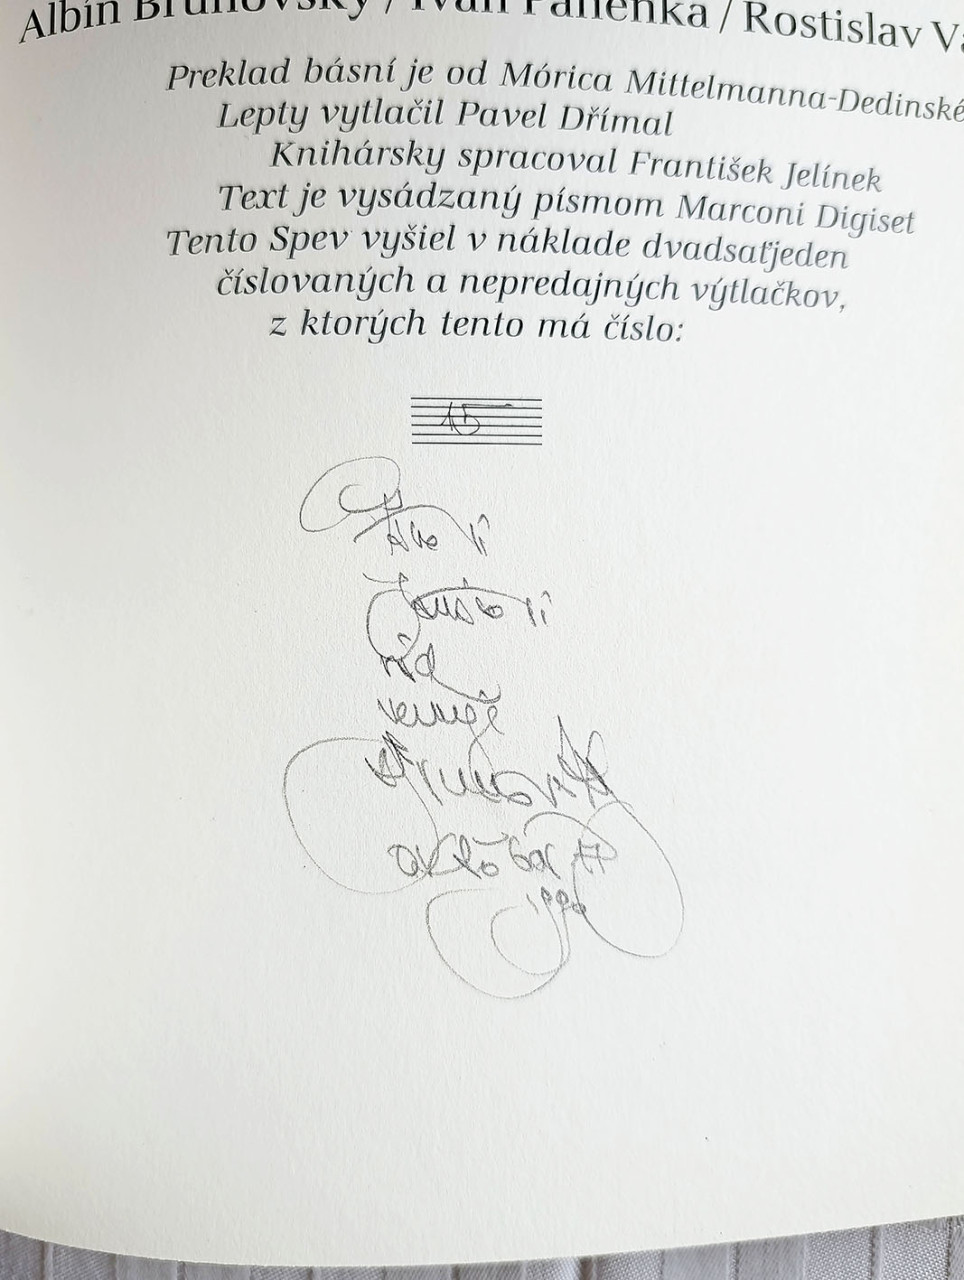 Albín Brunovský / Ivan Panenka / Rostislav
Preklad básní je od Mórica Mittelmanna-Dedinské
Lepty vytlačil Pavel Dřímal
Knihársky spracoval František Jelínek
Text je vysádzaný písmom Marconi Digiset
Tento Spev vyšiel v náklade dvadsaťjeden
číslovaných a nepredajných výtlačkov,
z ktorých tento má číslo:
15
rád
venuje
Brunovský
október